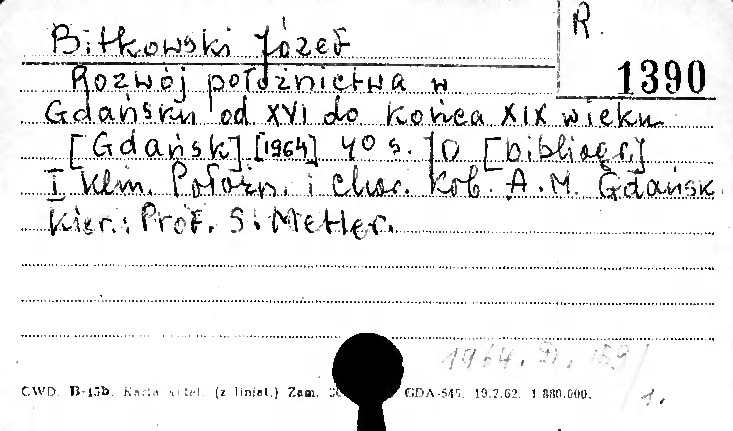 R.
1390
Bitkowski Józef
Rozwój położnictwa w
Gdańsku od XVI do końca XIX wieku
[Gdańsk] [1964] 40 s. [bibliogr.]
I Klin. Położn. i Chor. Kob. A.M. Gdańsk
Kier.: Prof. S. Metler.
1964.
1.
CWD. B-15b. Karta (z liniat.) Zam. GDA-545. 19.2.62. 1.880.000.